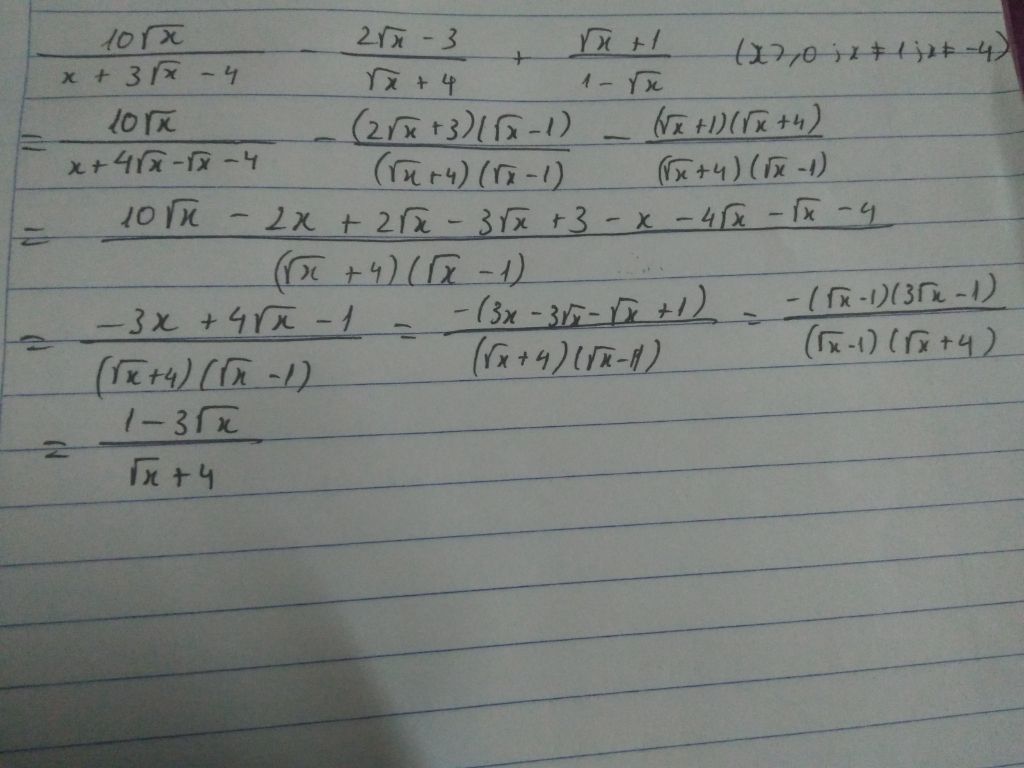 10√x / (x + 3√x - 4) - (2√x - 3) / (√x + 4) + (√x + 1) / (1 - √x) (x ≥ 0 ; x ≠ 1 ; x ≠ -4)
= 10√x / (x + 4√x - √x - 4) - (2√x + 3)(√x - 1) / (√x + 4)(√x - 1) - (√x + 1)(√x + 4) / (√x + 4)(√x - 1)
= (10√x - 2x + 2√x - 3√x + 3 - x - 4√x - √x - 4) / (√x + 4)(√x - 1)
= (-3x + 4√x - 1) / (√x + 4)(√x - 1) = -(3x - 3√x - √x + 1) / (√x + 4)(√x - 1) = -(√x - 1)(3√x - 1) / (√x - 1)(√x + 4)
= (1 - 3√x) / (√x + 4)